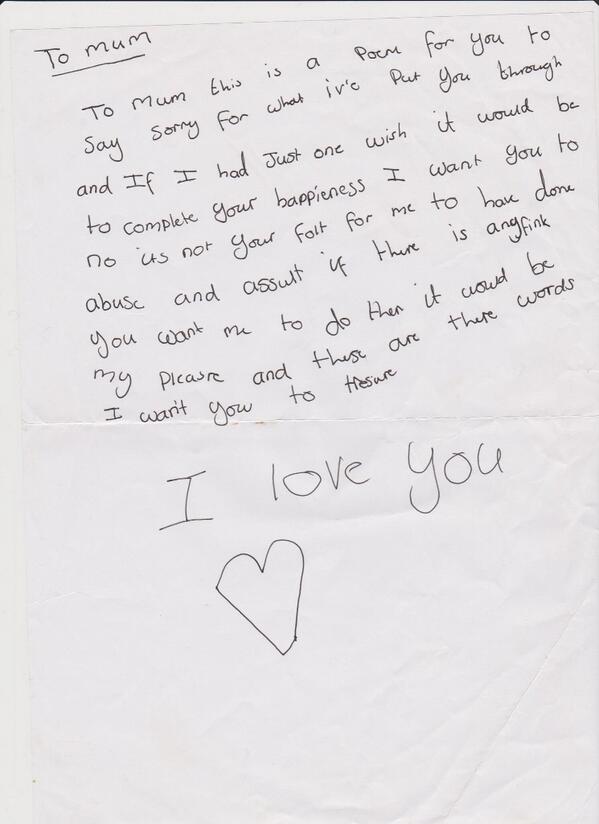 To mum
To Mum this is a Poem for you to
say sorry for what iv'e Put you through
and If I had Just one wish it would be
to complete your happieness I want you to
no its not your folt for me to have done
abuse and assult if there is anyfink
you want me to do then it would be
my Pleasre and these are there words
I want you to tresure
I love you